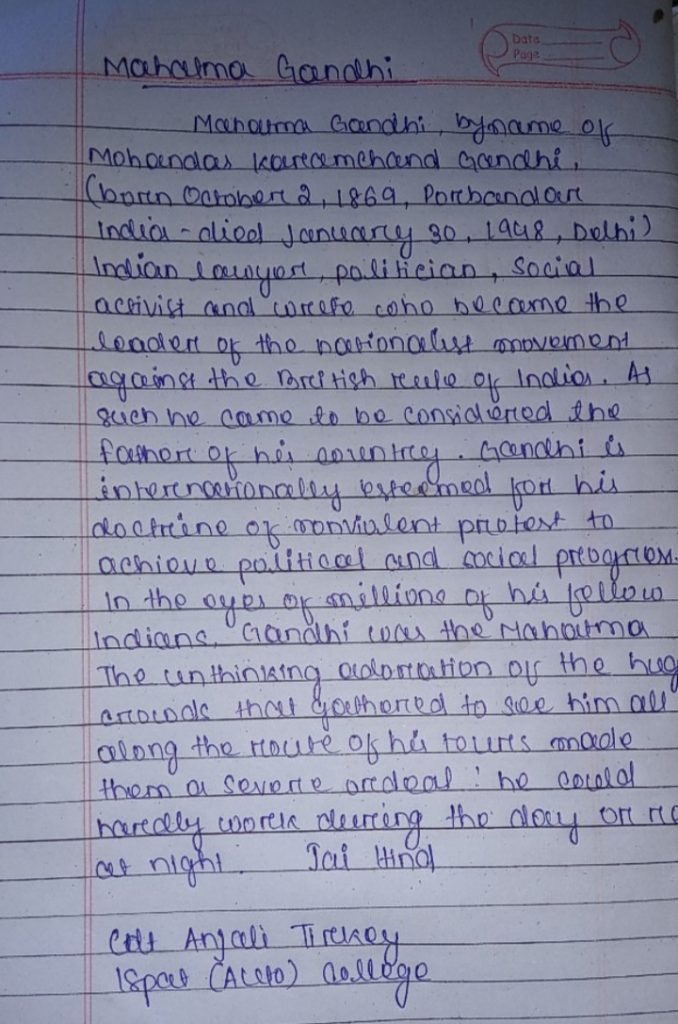 Date
Page
Mahatma Gandhi
Mahatma Gandhi, byname of
Mohandas Karamchand Gandhi,
(born October 2, 1869, Porbandar
India - died January 30, 1948, Delhi)
Indian lawyer, politician, social
activist and who became the
leader of the nationalist movement
against the British rule of India. As
such he came to be considered the
father of his country. Gandhi is
internationally esteemed for his
doctrine of nonviolent protest to
achieve political and social progress.
In the eyes of millions of his fellow
Indians, Gandhi was the Mahatma
The unthinking adoration of the hug
that gathered to see him all
along the route of his tours made
them a severe ordeal : he could
hardly work during the day or
at night. Jai Hind
Cdt Anjali Tirkey
Ispat College